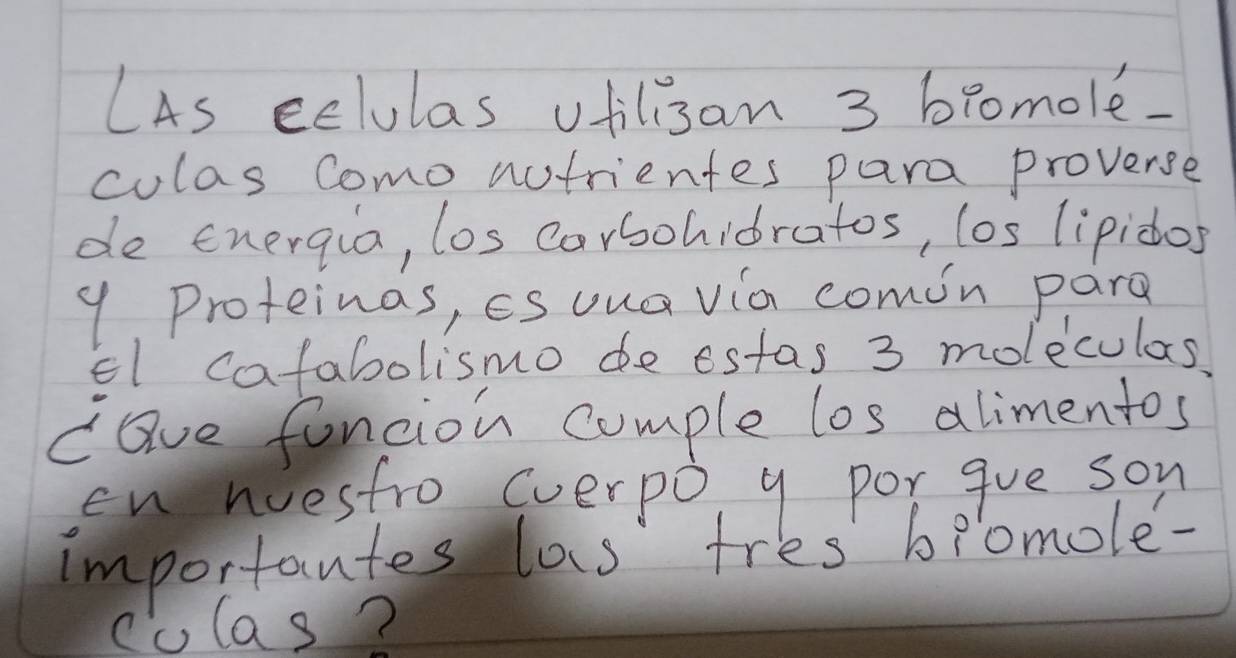 LAs celulas utilizan 3 biomolé-
culas Como nutrientes para proverse
de energía, los carbohidratos, los lipidos
y Proteinas, es una vía común para
el catabolismo de estas 3 moléculas.
¿Que función cumple los alimentos
en nuestro cuerpo y por que son
importantes las tres biomolé-
culas?